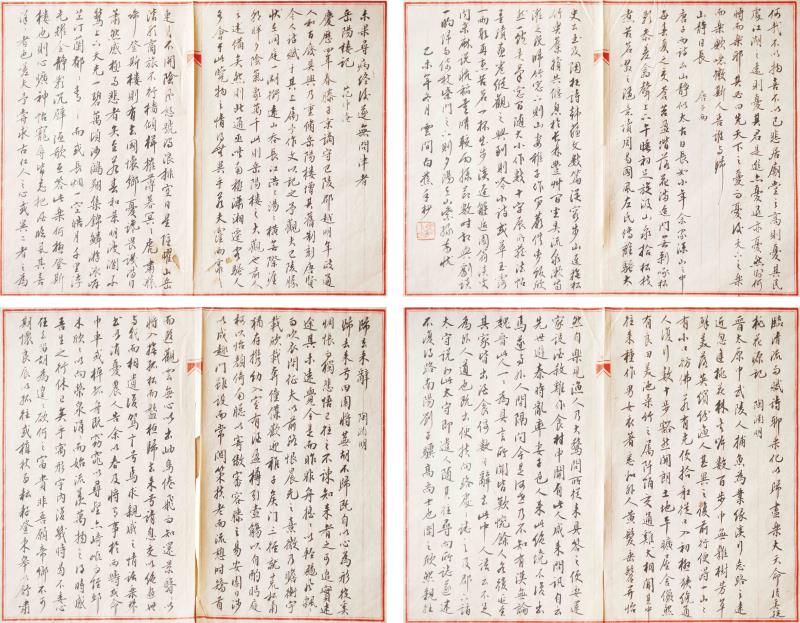 歸去來辭 陶淵明
歸去來兮田園將蕪胡不歸既自以心為形役奚
惆悵而獨悲悟已往之不諫知來者之可追實迷
途其未遠覺今是而昨非舟搖搖以輕颺風飄
飄而吹衣問征夫以前路恨晨光之熹微乃瞻衡宇
載欣載奔僮僕歡迎稚子候門三徑就荒松菊
猶存攜幼入室有酒盈樽引壺觴以自酌眄庭
柯以怡顏倚南窗以寄傲審容膝之易安園日涉
以成趣門雖設而常關策扶老而流憩時矯首
而遐觀雲無心以出岫鳥倦飛而知還景翳翳以
將入撫孤松而盤桓歸去來兮請息交以絕遊世
與我而相遺復駕言兮焉求親戚之情話樂琴
書以消憂農人告余以春及將有事於西疇或命
巾車或棹孤舟既窈窕以尋壑亦崎嶇而經邱
木欣欣以向榮泉涓涓而始流羨萬物之得時感
吾生之行休已矣乎寓形宇內復幾時曷不委心
任去留胡為遑遑欲何之富貴非吾願帝鄉不可
期懷良辰以孤往或植杖而耘耔登東皋以舒嘯
臨清流而賦詩聊乘化以歸盡樂夫天命復奚疑
桃花源記 陶淵明
晉太原中武陵人捕魚為業緣溪行忘路之遠
近忽逢桃花林夾岸數百步中無雜樹芳草
鮮美落英繽紛漁人甚異之復前行便得一山山
有小口彷彿若有光便捨船從口入初極狹纔通
人復行數十步豁然開朗土地平曠屋舍儼然
有良田美池桑竹之屬阡陌交通雞犬相聞其中
往來種作男女衣著悉如外人黃髮垂髫並怡
然自樂見漁人乃大驚問所從來具答之便要還
家設酒殺雞作食村中聞有此人咸來問訊自云
先世避秦時亂率妻子邑人來此絕境不復出
焉遂與外人間隔問今是何世乃不知有漢無論
魏晉此人一一為具言所聞皆歎惋餘人各復延至
其家皆出酒食停數日辭去此中人語云不足
為外人道也既出便扶向路處處誌之及郡下詣
太守說如此太守即遣人隨其往尋向所誌遂迷
不復得路南陽劉子驥高尚士也聞之欣然親往
未果尋病終後遂無問津者
岳陽樓記 范仲淹
慶曆四年春滕子京謫守巴陵郡越明年政通
人和百廢具興乃重修岳陽樓增其舊制刻唐賢
今人詩賦於其上屬予作文以記之予觀夫巴陵勝
狀在洞庭一湖銜遠山吞長江浩浩湯湯橫無際涯
朝暉夕陰氣象萬千此則岳陽樓之大觀也前人
之述備矣然則北通巫峽南極瀟湘遷客騷人
多會於此覽物之情得無異乎若夫霪雨霏霏
連月不開陰風怒號濁浪排空日星隱耀山岳
潛形商旅不行檣傾楫摧薄暮冥冥虎嘯猿
啼登斯樓則有去國懷鄉憂讒畏譏滿目
蕭然感極而悲者矣至若春和景明波瀾不
驚上下天光一碧萬頃沙鷗翔集錦鱗游泳岸
芷汀蘭郁郁青青而或長煙一空皓月千里浮
光耀金靜影沉璧漁歌互答此樂何極登斯
樓也則心曠神怡寵辱皆忘把酒臨風其喜
洋洋者也嗟夫予嘗求古仁人之心或異二者之為
何哉不以物喜不以己悲居廟堂之高則憂其民
處江湖之遠則憂其君是進亦憂退亦憂然則何
時而樂耶其必曰先天下之憂而憂後天下之樂
而樂歟噫微斯人吾誰與歸
山靜日長 唐子西
唐子西詩云山靜似太古日長如小年余家深山之中
每春夏之交蒼蘚盈階落花滿徑門無剝啄松
影參差禽聲上下午睡初足旋汲山泉拾松枝
煮苦茗啜之隨意讀周易國風左氏傳離騷太
史公書及陶杜詩韓蘇文數篇從容步山徑撫松
竹與麋犢共偃息於長林豐草間坐弄流泉漱齒
濯足既歸竹窗下則山妻稚子作筍蕨供麥飯欣
然一飽弄筆窗間隨大小作數十字展所藏法帖
墨蹟畫卷縱觀之興到則吟小詩或草玉露
一兩段再烹苦茗一杯出步溪邊邂逅園翁溪友
問桑麻說秔稻量晴校雨探節數時相與劇談
一晌歸而倚杖柴門之下則夕陽在山紫綠萬狀
己未年五月 雲間白蕉手抄